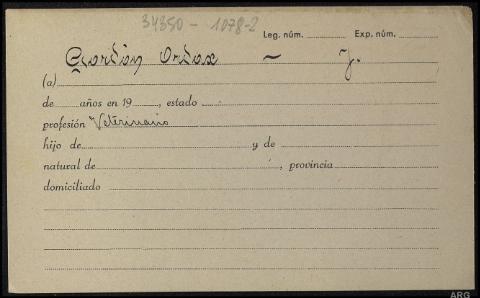 34350 - 1078-2
Leg. núm. Exp. núm.
Gordón Ordax - J.
(a)
de años en 19 , estado
profesión Veterinario
hijo de y de
natural de , provincia
domiciliado
ARG